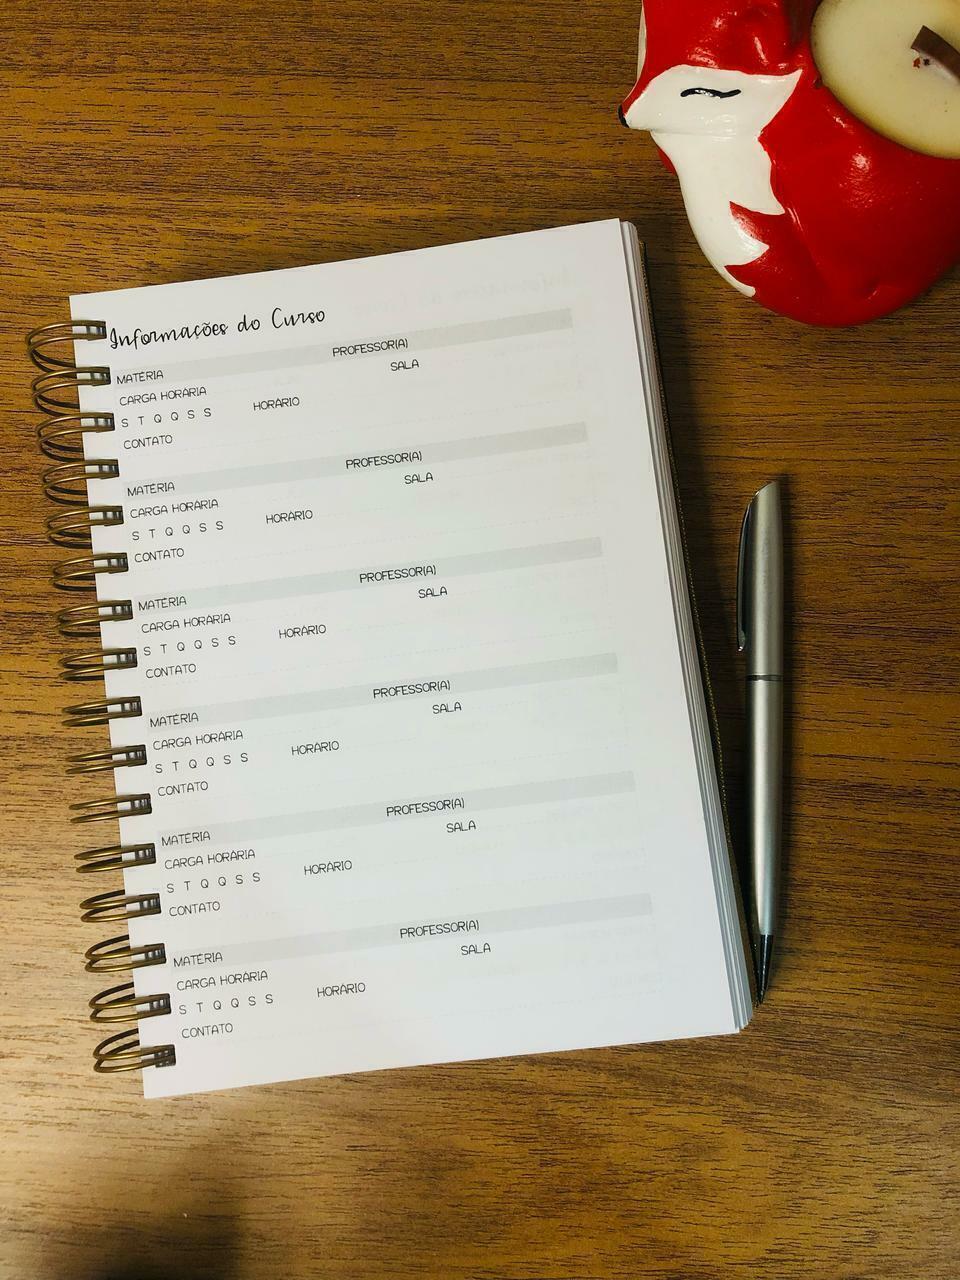 Informações do Curso
MATÉRIA PROFESSOR(A)
CARGA HORÁRIA SALA
S T Q Q S S HORÁRIO
CONTATO
MATÉRIA PROFESSOR(A)
CARGA HORÁRIA SALA
S T Q Q S S HORÁRIO
CONTATO
MATÉRIA PROFESSOR(A)
CARGA HORÁRIA SALA
S T Q Q S S HORÁRIO
CONTATO
MATÉRIA PROFESSOR(A)
CARGA HORÁRIA SALA
S T Q Q S S HORÁRIO
CONTATO
MATÉRIA PROFESSOR(A)
CARGA HORÁRIA SALA
S T Q Q S S HORÁRIO
CONTATO
MATÉRIA PROFESSOR(A)
CARGA HORÁRIA SALA
S T Q Q S S HORÁRIO
CONTATO